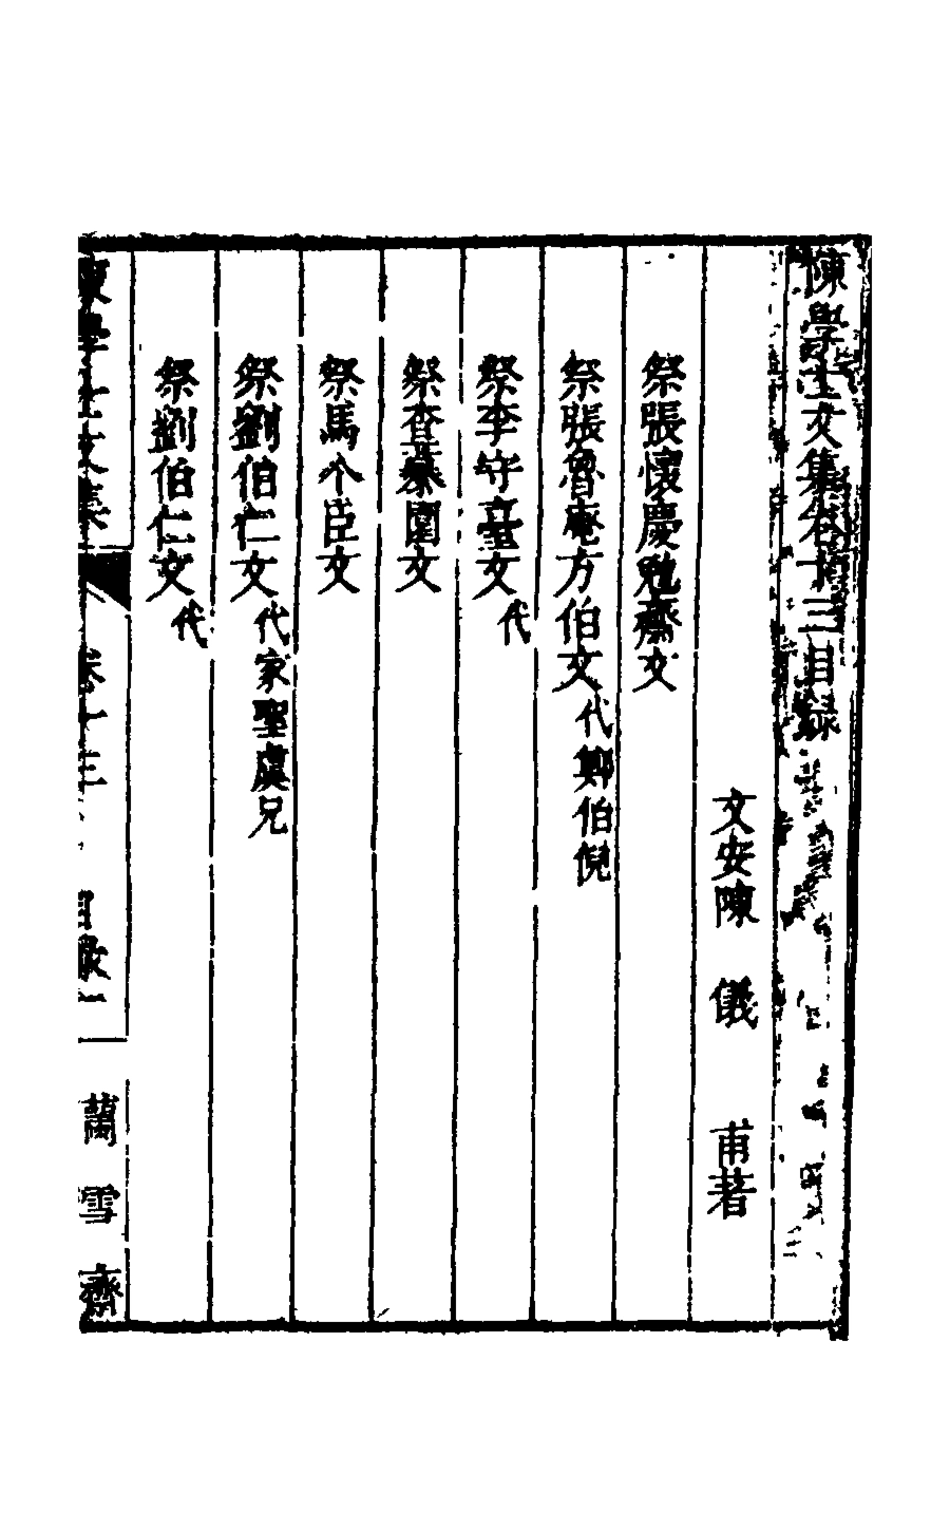 陳學士文集卷十三目錄
文安陳　儀　甫著
祭張懷慶勉齋文
祭張魯庵方伯文代鄭伯倪
祭李守臺文代
祭查慕園文
祭馬个臣文
祭劉伯仁文代家聖虞兄
祭劉伯仁文代
陳學士文集　卷十三　目錄一　蘭雪齋